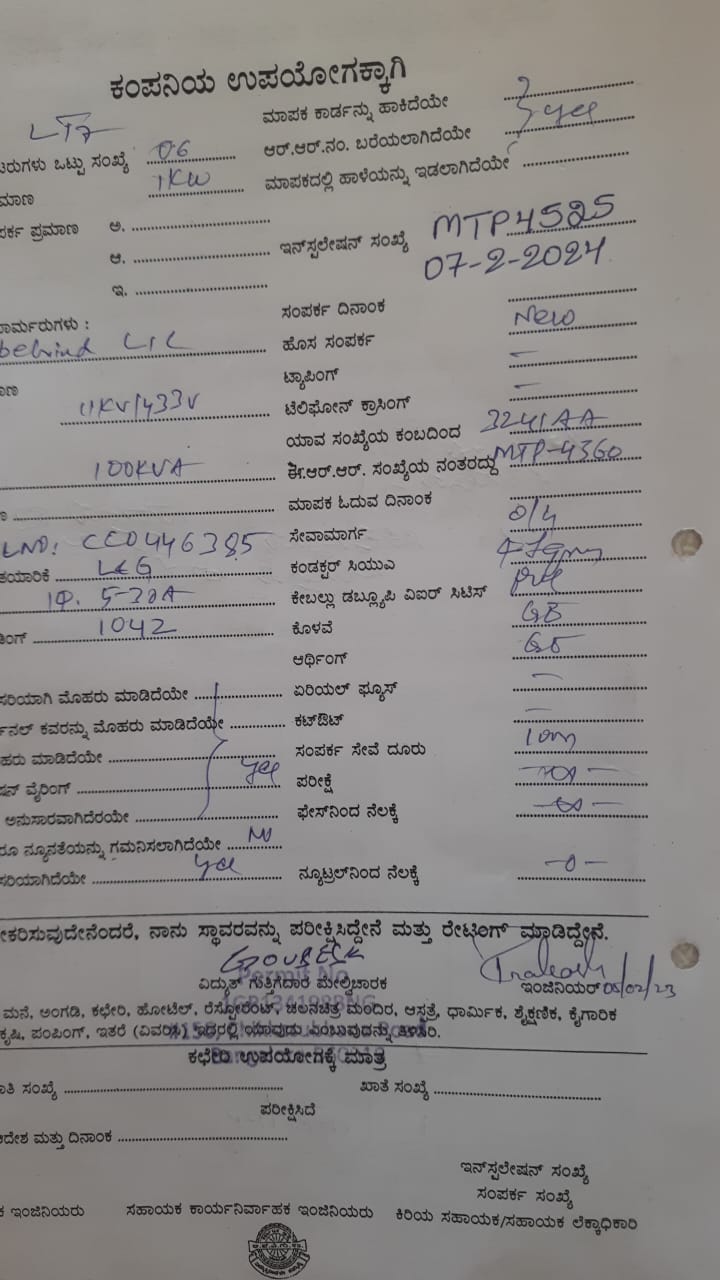 ಕಂಪನಿಯ ಉಪಯೋಗಕ್ಕಾಗಿ
LT7 ಮಾಪಕ ಕಾರ್ಡನ್ನು ಹಾಕಿದೆಯೇ
ಟರುಗಳು ಒಟ್ಟು ಸಂಖ್ಯೆ 06 ಆರ್.ಆರ್.ನಂ. ಬರೆಯಲಾಗಿದೆಯೇ yes
ಮಾಣ 1KW ಮಾಪಕದಲ್ಲಿ ಹಾಳೆಯನ್ನು ಇಡಲಾಗಿದೆಯೇ
ಪರ್ಕ ಪ್ರಮಾಣ ಅ.
ಆ. ಇನ್‌ಸ್ಪಲೇಷನ್ ಸಂಖ್ಯೆ MTP4525
07-2-2024
ಇ.
ಸಂಪರ್ಕ ದಿನಾಂಕ
ಾರ್ಮರುಗಳು :
behind LIC ಹೊಸ ಸಂಪರ್ಕ New
ಟ್ಯಾಪಿಂಗ್ –
ಾಣ 11KV/433V ಟೆಲಿಫೋನ್ ಕ್ರಾಸಿಂಗ್ –
ಯಾವ ಸಂಖ್ಯೆಯ ಕಂಬದಿಂದ 3241AA
100KVA ಈ.ಆರ್.ಆರ್. ಸಂಖ್ಯೆಯ ನಂತರದ್ದು MTP-4360
ಮಾಪಕ ಓದುವ ದಿನಾಂಕ
CC0446385 ಸೇವಾಮಾರ್ಗ O/H
ತಯಾರಿಕೆ L&G ಕಂಡಕ್ಟರ್ ಸಿಯುವಿ
1Φ. 5-30A ಕೇಬಲ್ಲು ಡಬ್ಲ್ಯೂಪಿ ವಿಐರ್ ಸಿಟಿಸ್
ಡಿಂಗ್ 1042 ಕೊಳವೆ GB
ಆರ್ಥಿಂಗ್
ಸರಿಯಾಗಿ ಮೊಹರು ಮಾಡಿದೆಯೇ ಏರಿಯಲ್ ಫ್ಯೂಸ್ –
ನಲ್ ಕವರನ್ನು ಮೊಹರು ಮಾಡಿದೆಯೇ ಕಟ್‌ಔಟ್ –
ಹರು ಮಾಡಿದೆಯೇ ಸಂಪರ್ಕ ಸೇವೆ ದೂರು 10m
ಷನ್ ವೈರಿಂಗ್ yes ಪರೀಕ್ಷೆ
ಅನುಸಾರವಾಗಿದೆರಯೇ ಫೇಸ್‌ನಿಂದ ನೆಲಕ್ಕೆ
ರೂ ನ್ಯೂನತೆಯನ್ನು ಗಮನಿಸಲಾಗಿದೆಯೇ No
ಸರಿಯಾಗಿದೆಯೇ yes ನ್ಯೂಟ್ರಲ್‌ನಿಂದ ನೆಲಕ್ಕೆ –0–
ೀಕರಿಸುವುದೇನೆಂದರೆ, ನಾನು ಸ್ಥಾವರವನ್ನು ಪರೀಕ್ಷಿಸಿದ್ದೇನೆ ಮತ್ತು ರೇಟಿಂಗ್ ಮಾಡಿದ್ದೇನೆ.
ವಿದ್ಯುತ್ ಗುತ್ತಿಗೆದಾರ ಮೇಲ್ವಿಚಾರಕ ಇಂಜಿನಿಯರ್ 05/02/23
Permit No
ಮನೆ, ಅಂಗಡಿ, ಕಛೇರಿ, ಹೋಟೆಲ್, ರೆಸ್ಟೋರೆಂಟ್, ಚಲನಚಿತ್ರ ಮಂದಿರ, ಆಸ್ಪತ್ರೆ, ಧಾರ್ಮಿಕ, ಶೈಕ್ಷಣಿಕ, ಕೈಗಾರಿಕ
ಕೃಷಿ, ಪಂಪಿಂಗ್, ಇತರೆ (ವಿವರಿಸಿ) ಇದರಲ್ಲಿ ಯಾವುದು ಎಂಬುವುದನ್ನು ತಿಳಿಸಿರಿ.
ಕಛೇರಿ ಉಪಯೋಗಕ್ಕೆ ಮಾತ್ರ
ತಿ ಸಂಖ್ಯೆ ಖಾತೆ ಸಂಖ್ಯೆ
ಪರೀಕ್ಷಿಸಿದೆ
ಆದೇಶ ಮತ್ತು ದಿನಾಂಕ
ಇನ್‌ಸ್ಪಲೇಷನ್ ಸಂಖ್ಯೆ
ಸಂಪರ್ಕ ಸಂಖ್ಯೆ
ಕ ಇಂಜಿನಿಯರು ಸಹಾಯಕ ಕಾರ್ಯನಿರ್ವಾಹಕ ಇಂಜಿನಿಯರು ಕಿರಿಯ ಸಹಾಯಕ/ಸಹಾಯಕ ಲೆಕ್ಕಾಧಿಕಾರಿ